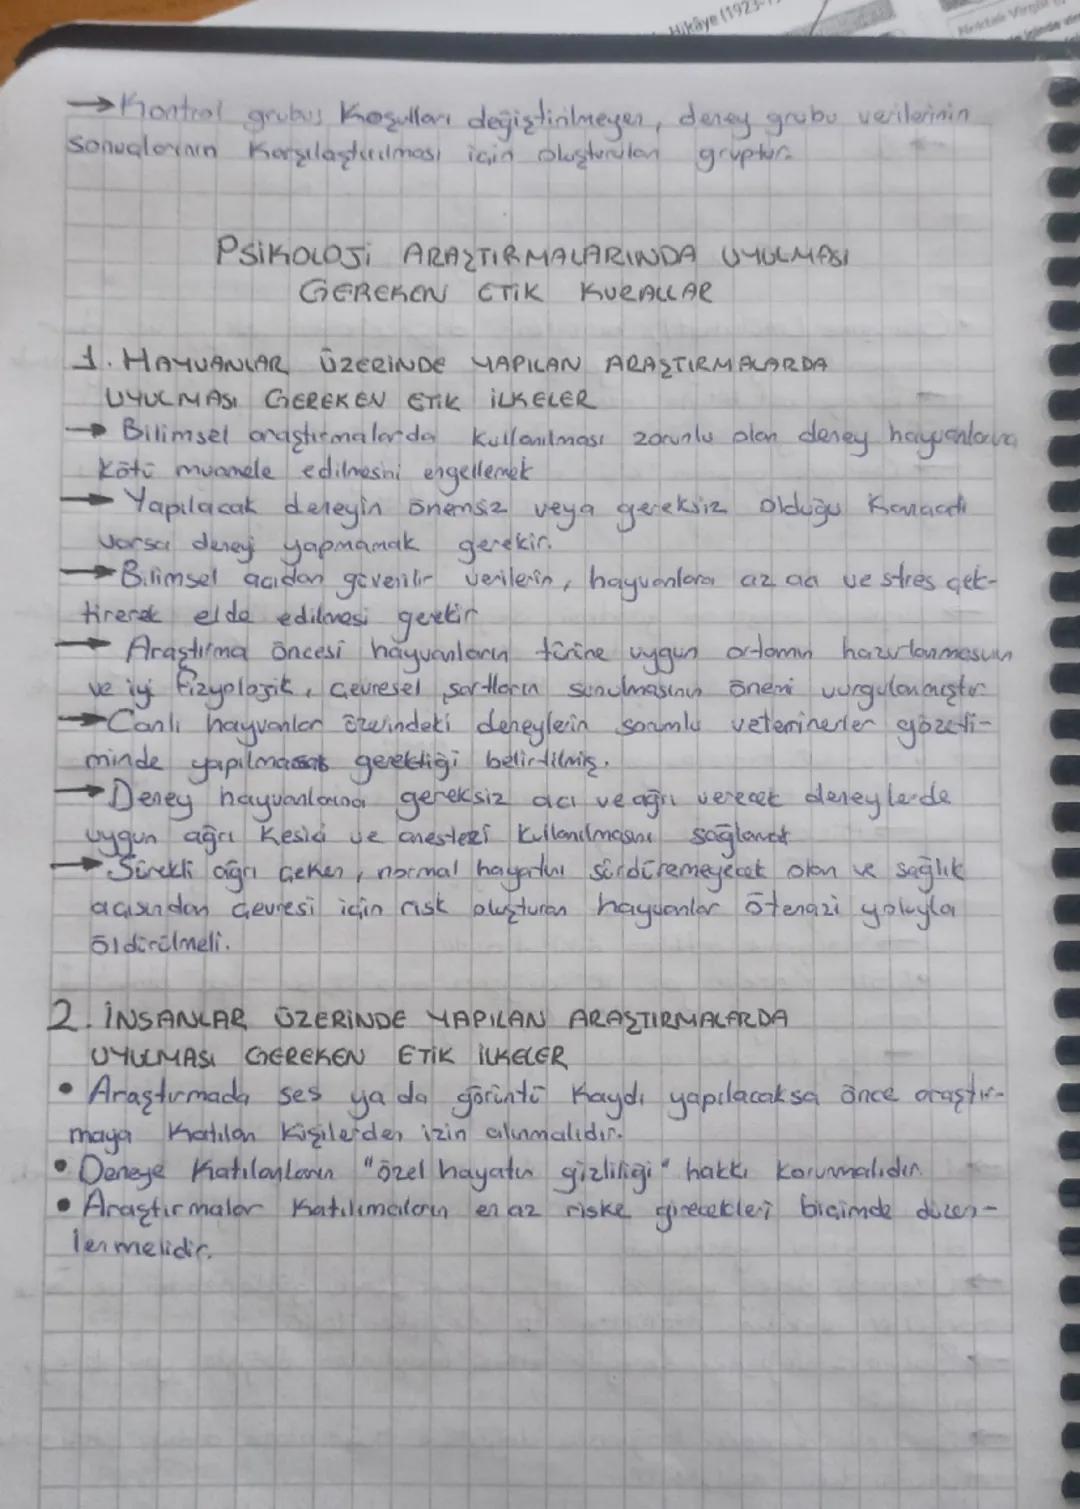 Hikâye (1923-
→ Kontrol grubu: Koşulları değiştirilmeyen, deney grubu verilerinin
sonuçlarının karşılaştırılması için oluşturulan gruptur.
PSİKOLOJİ ARAŞTIRMALARINDA UYULMASI
GEREKEN ETİK KURALLAR
1. HAYVANLAR ÜZERİNDE YAPILAN ARAŞTIRMALARDA
UYULMASI GEREKEN ETİK İLKELER
→ Bilimsel araştırmalarda kullanılması zorunlu olan deney hayvanlara
kötü muamele edilmesini engellemek
→ Yapılacak deneyin önemsiz veya gereksiz olduğu kanaati
varsa deney yapmamak gerekir.
→ Bilimsel açıdan güvenilir verilerin, hayvanlara az acı ve stres çek-
tirerek elde edilmesi gerekir
→ Araştırma öncesi hayvanların türüne uygun ortamın hazırlanmasının
ve iyi fizyolojik, çevresel şartların sunulmasının önemi vurgulanmıştır
→ Canlı hayvanlar üzerindeki deneylerin sorumlu veterinerler gözeti-
minde yapılması gerektiği belirtilmiş.
→ Deney hayvanlarına gereksiz acı ve ağrı verecek deneylerde
uygun ağrı kesici ve anestezi kullanılmasını sağlamak
→ Sürekli ağrı çeken, normal hayatını sürdüremeyecek olan ve sağlık
açısından çevresi için risk oluşturan hayvanlar ötenazi yoluyla
öldürülmeli.
2. İNSANLAR ÜZERİNDE YAPILAN ARAŞTIRMALARDA
UYULMASI GEREKEN ETİK İLKELER
• Araştırmada ses ya da görüntü kaydı yapılacaksa önce araştır-
maya katılan kişilerden izin alınmalıdır.
• Deneye katılanların "özel hayatın gizliliği" hakkı korunmalıdır.
• Araştırmalar katılımcıların en az riske girecekleri biçimde düzen-
lenmelidir.